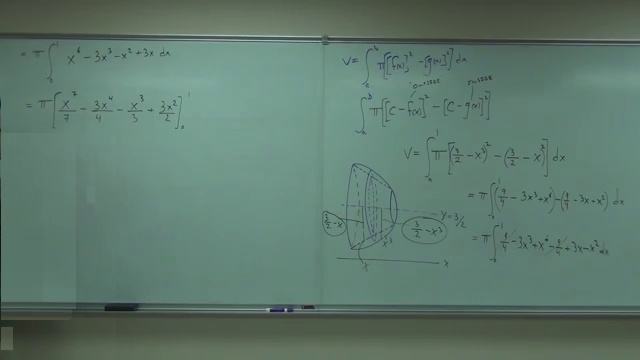 = π ∫₀¹ x⁶ - 3x³ - x² + 3x dx
= π [x⁷/7 - 3x⁴/4 - x³/3 + 3x²/2]₀¹
V = ∫ₐᵇ π[[f(x)]² - [g(x)]²] dx
∫ₐᵇ π[[C - f(x)]² - [C - g(x)]²]
V = ∫₀¹ π[(3/2 - x³)² - (3/2 - x)²] dx
= π ∫₀¹ (9/4 - 3x³ + x⁶) - (9/4 - 3x + x²) dx
= π ∫₀¹ 9/4 - 3x³ + x⁶ - 9/4 + 3x - x² dx
y = 3/2
3/2 - x
3/2 - x³
x³
x
x